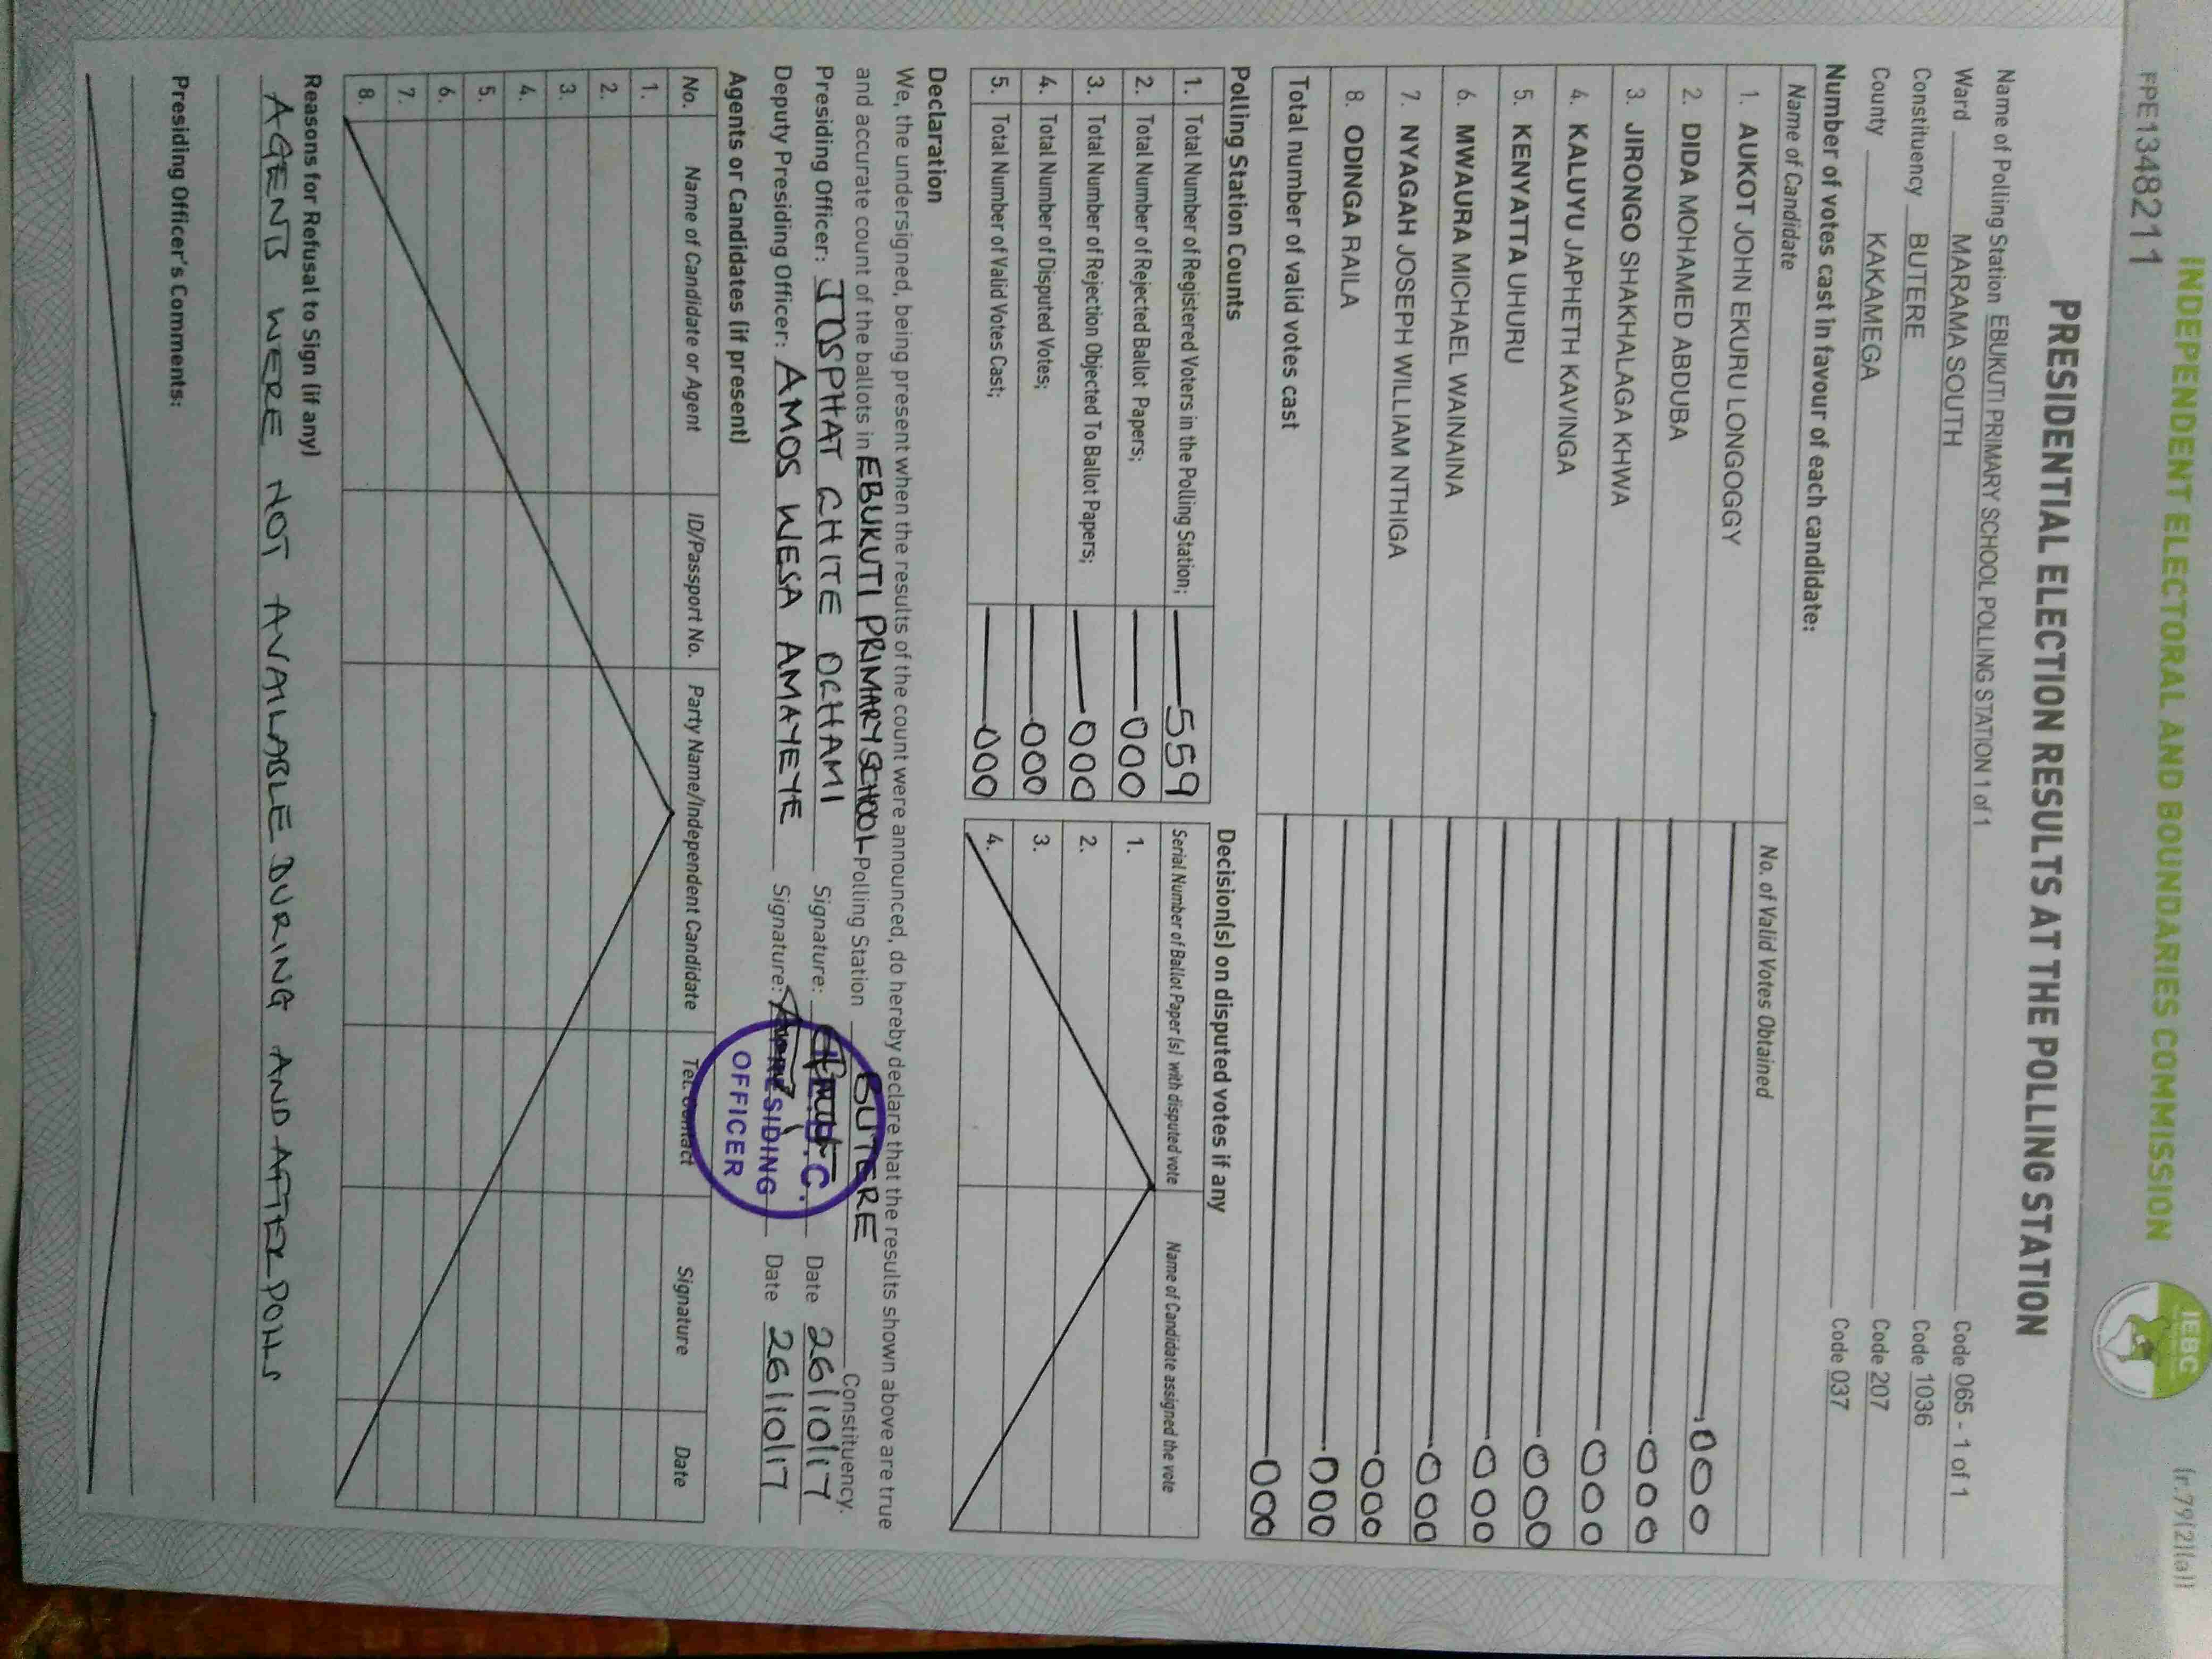 INDEPENDENT ELECTORAL AND BOUNDARIES COMMISSION
IEBC
(r.79(2)(a))
FPE1348211
PRESIDENTIAL ELECTION RESULTS AT THE POLLING STATION
Name of Polling Station EBUKUTI PRIMARY SCHOOL POLLING STATION 1 of 1 Code 065 - 1 of 1
Ward MARAMA SOUTH Code 1036
Constituency BUTERE Code 207
County KAKAMEGA Code 037
Number of votes cast in favour of each candidate:
Name of Candidate No. of Valid Votes Obtained
1. AUKOT JOHN EKURU LONGOGGY 000
2. DIDA MOHAMED ABDUBA 000
3. JIRONGO SHAKHALAGA KHWA 000
4. KALUYU JAPHETH KAVINGA 000
5. KENYATTA UHURU 000
6. MWAURA MICHAEL WAINAINA 000
7. NYAGAH JOSEPH WILLIAM NTHIGA 000
8. ODINGA RAILA 000
Total number of valid votes cast 000
Polling Station Counts
1. Total Number of Registered Voters in the Polling Station; 559
2. Total Number of Rejected Ballot Papers; 000
3. Total Number of Rejection Objected To Ballot Papers; 000
4. Total Number of Disputed Votes; 000
5. Total Number of Valid Votes Cast; 000
Decision(s) on disputed votes if any
Serial Number of Ballot Paper (s) with disputed vote Name of Candidate assigned the vote
1.
2.
3.
4.
Declaration
We, the undersigned, being present when the results of the count were announced, do hereby declare that the results shown above are true
and accurate count of the ballots in EBUKUTI PRIMARY SCHOOL Polling Station BUTERE Constituency.
Presiding Officer: JOSPHAT CHITE OCHAMI Signature: Date 26/10/17
Deputy Presiding Officer: AMOS WESA AMAYEYE Signature: Date 26/10/17
PRESIDING
OFFICER
Agents or Candidates (if present)
No. Name of Candidate or Agent ID/Passport No. Party Name/Independent Candidate Tel. Contact Signature Date
1.
2.
3.
4.
5.
6.
7.
8.
Reasons for Refusal to Sign (if any)
AGENTS WERE NOT AVAILABLE DURING AND AFTER POLLS
Presiding Officer's Comments: